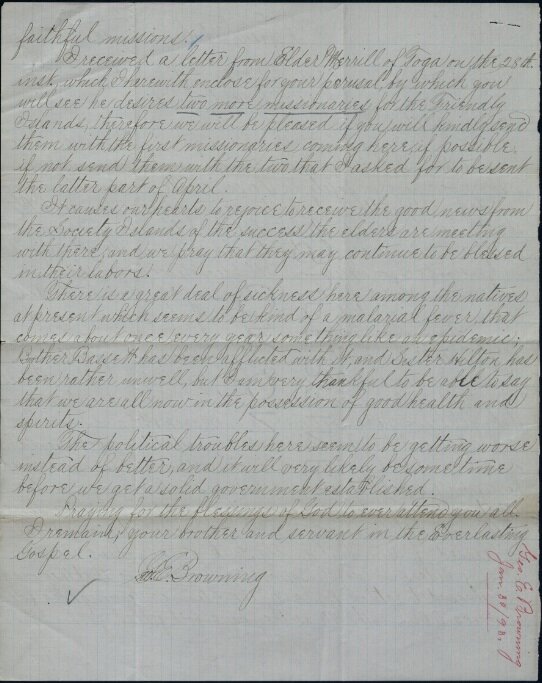 faithful missions.
I received a letter from Elder Merrill of Toga on the 28th.
inst, which I herewith enclose for your perusal, by which you
will see he desires two more missionaries for the Friendly
Islands, therefore we will be pleased if you will kindly send
them with the first missionaries coming here, if possible,
if not send them with the two that I asked for to be sent
the latter part of April.
It causes our hearts to rejoice to receive the good news from
the Society Islands of the success the elders are meeting
with there, and we pray that they may continue to be blessed
in their labors.
There is a great deal of sickness here among the natives
at present which seems to be kind of a malarial fever that
comes about once every year something like an epidemic;
Brother Bassett has been afflicted with it, and Sister Hilton has
been rather unwell, but I am very thankful to be able to say
that we are all now in the possession of good health and
spirits.
The political troubles here seem to be getting worse
instead of better, and it will very likely be some time
before we get a solid government established.
Praying for the blessings of God to ever attend you all.
I remain, your brother and servant in the Everlasting
Gospel.
G. E. Browning
Geo E Browning
Jan. 30/93.